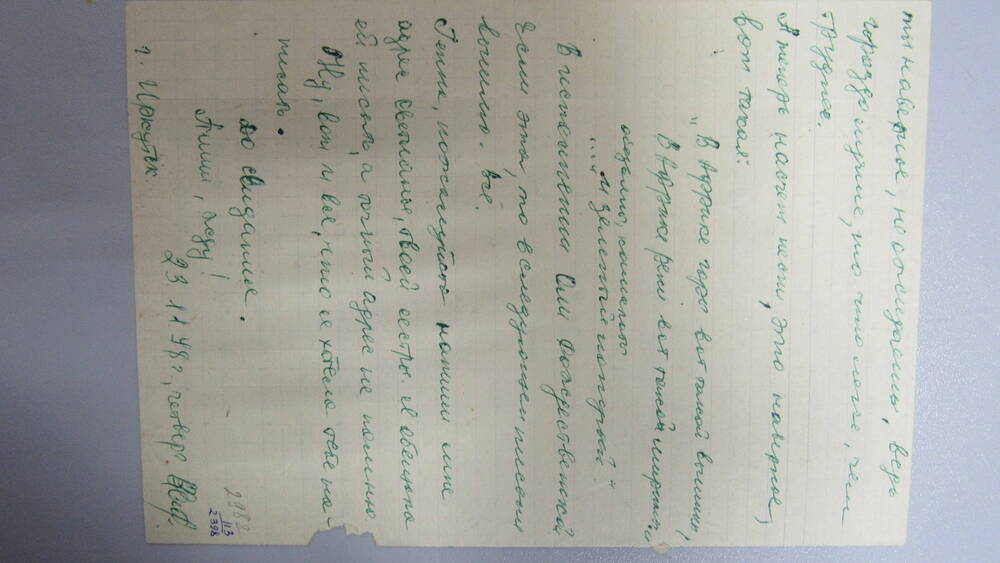 ты наверное, не ожидаешь, ведь
гораздо лучше, то что легче, чем
труднее.
А теперь насчет песни, это наверное,
вот такая:
„В Африке горы вот такой вышины,
В Африке реки вот такой ширины
обезьяны, кашалоты
...„и зеленый попугай“
В исполнении Оли Рождественской
Если эта, то в следующем письме
вышлю. Всё.
Генна, пожалуйста напиши мне
адрес Светланы, твоей сестры. Я обещала
ей писать, а точный адрес не помню.
Ну, вот и все, что я хотела тебе на-
писать.
До свидания.
Пиши, жду!
2982
113
2398
23.11.78г., четверг.
г. Иркутск.